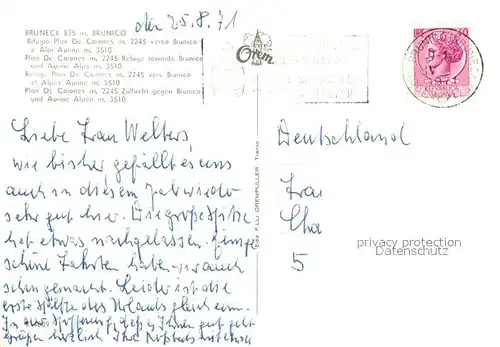 BRUNECK 835 m. BRUNICO
Rifugio Plan De Corones m. 2245 verso Brunico
e Alpi Aurine m. 3510
Plan De Corones m. 2245 Refuge towards Brunico
and Aurine Alpes m. 3510
Refuge Plan De Corones m. 2245 vers Brunico
et Alpes Aurine m. 3510
Plan De Corones m. 2245 Zuflucht gegen Brunico
und Aurine Alpen m. 3510
den 25.8.71
Orem
40
Liebe Frau Welters
wie bisher gefällt es uns
auch in diesem Jahr wieder
sehr gut hier. Die große Hitze
hat etwas nachgelassen. Einige
schöne Fahrten haben wir auch
schon gemacht. Leider ist die
erste Hälfte des Urlaubs gleich um.
In Hoffnung, daß es Ihnen gut geht
grüßen herzlich Ihre
Ediz. F.LLI OREMPULLER Trento
Deutschland
Frau
Cha
5
privacy protection
Datenschutz